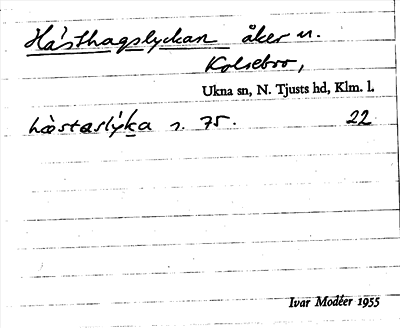 Hästhagslyckan åker u.
Kolsebro,
Ukna sn, N. Tjusts hd, Klm. l.
hæstaslýka s. 75. 22
Ivar Modéer 1955